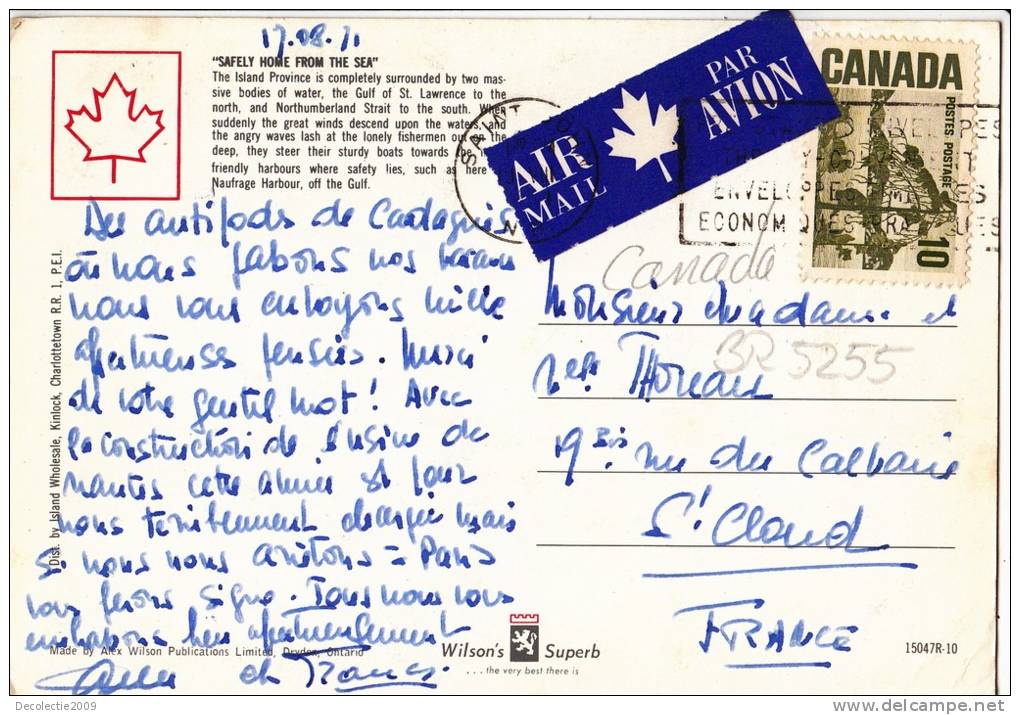 17.08.71
"SAFELY HOME FROM THE SEA"
The Island Province is completely surrounded by two mas-
sive bodies of water, the Gulf of St. Lawrence to the
north, and Northumberland Strait to the south. When
suddenly the great winds descend upon the waters, and
the angry waves lash at the lonely fishermen out on the
deep, they steer their sturdy boats towards the
friendly harbours where safety lies, such as here
Naufrage Harbour, off the Gulf.
AIR MAIL
PAR AVION
SAINT
CANADA
POSTES POSTAGE
10
ENVELOPPES
ECONOM QUES PRA QUES
Canada
BR 5255
Des antipodes de
où nous nos
nous vous envoyons mille
affectueuses pensées. Merci
de votre gentil mot! Avec
la construction de l'usine de
Nantes cette année est pour
nous terriblement chargée mais
si nous nous arrêtons à Paris
vous ferons signe. Tous nous vous
embrassons bien affectueusement
et
Monsieur Madame et
Thoreau
9 Bis rue du Calvaire
St Cloud
FRANCE
Dist. by Island Wholesale, Kinlock, Charlottetown R.R. 1, P.E.I.
Made by Alex Wilson Publications Limited, Dryden, Ontario
Wilson's Superb
... the very best there is
15047R-10
Delcampe.net
Decolectie2009